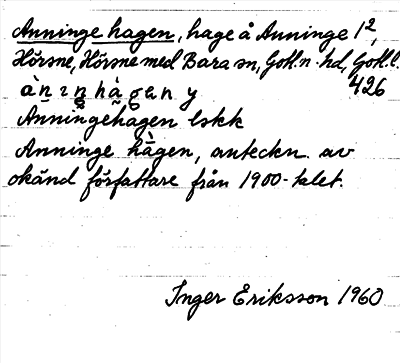 Anninge hagen, hage å Anninge 1²,
Hörsne, Hörsne med Bara sn, Gotl. n. hd, Gotl. l.
426
Anningehagen lskk
Anninge hàgen, anteckn. av
okänd författare från 1900-talet.
Inger Eriksson 1960